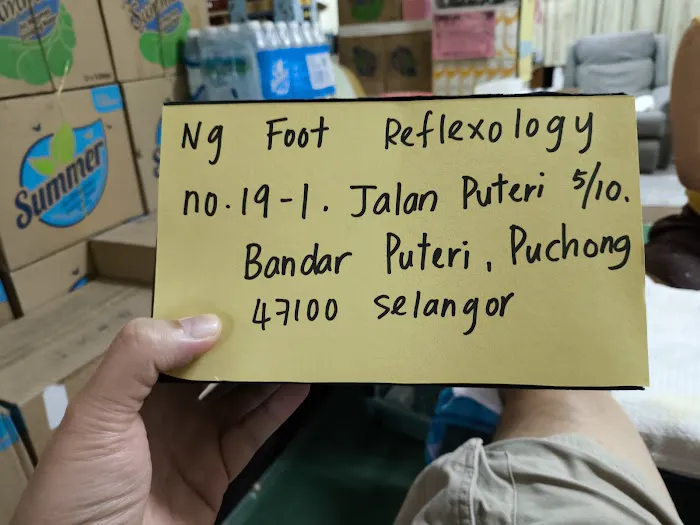 Summer
Summer
Ng Foot Reflexology
no.19-1. Jalan Puteri 5/10.
Bandar Puteri, Puchong
47100 selangor